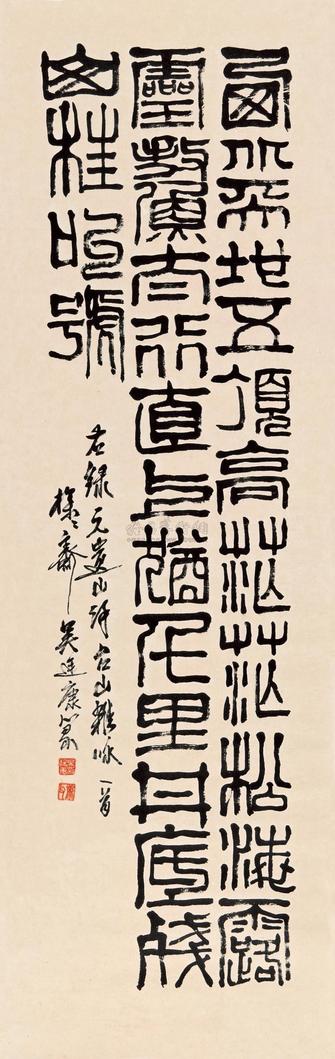 西北天地五頂高茫茫松海露
靈鰲太行直上猶千里井底殘
山枉叫號
右錄元遺山詩台山雜咏一首
樸齋吳廷康篆